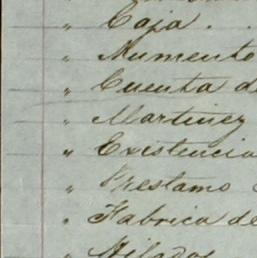 " Caja . .
" Aumento
" Cuenta d
" Martinez
" Existencia
" Prestamo
" Fabrica de
" Hilados